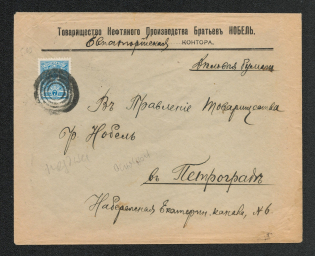 Товарищество Нефтяного Производства Братьевъ НОБЕЛЬ.
Евпаторійская КОНТОРА.
Въ Правленіе Товарищества
Бр Нобель
въ Петроградъ
Набережная Екатерин. канала, №6